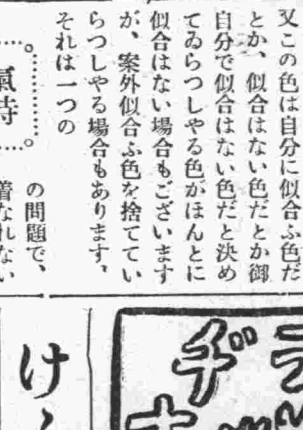 又この色は自分に似合ふ色だ
とか、似合はない色だとか御
自分で似合はない色だと決め
てゐらつしやる色がほんとに
似合はない場合もございます
が、案外似合ふ色を捨ててい
らつしやる場合もあります、
それは一つの
氣持
の問題で、
着なれない
デラ
け